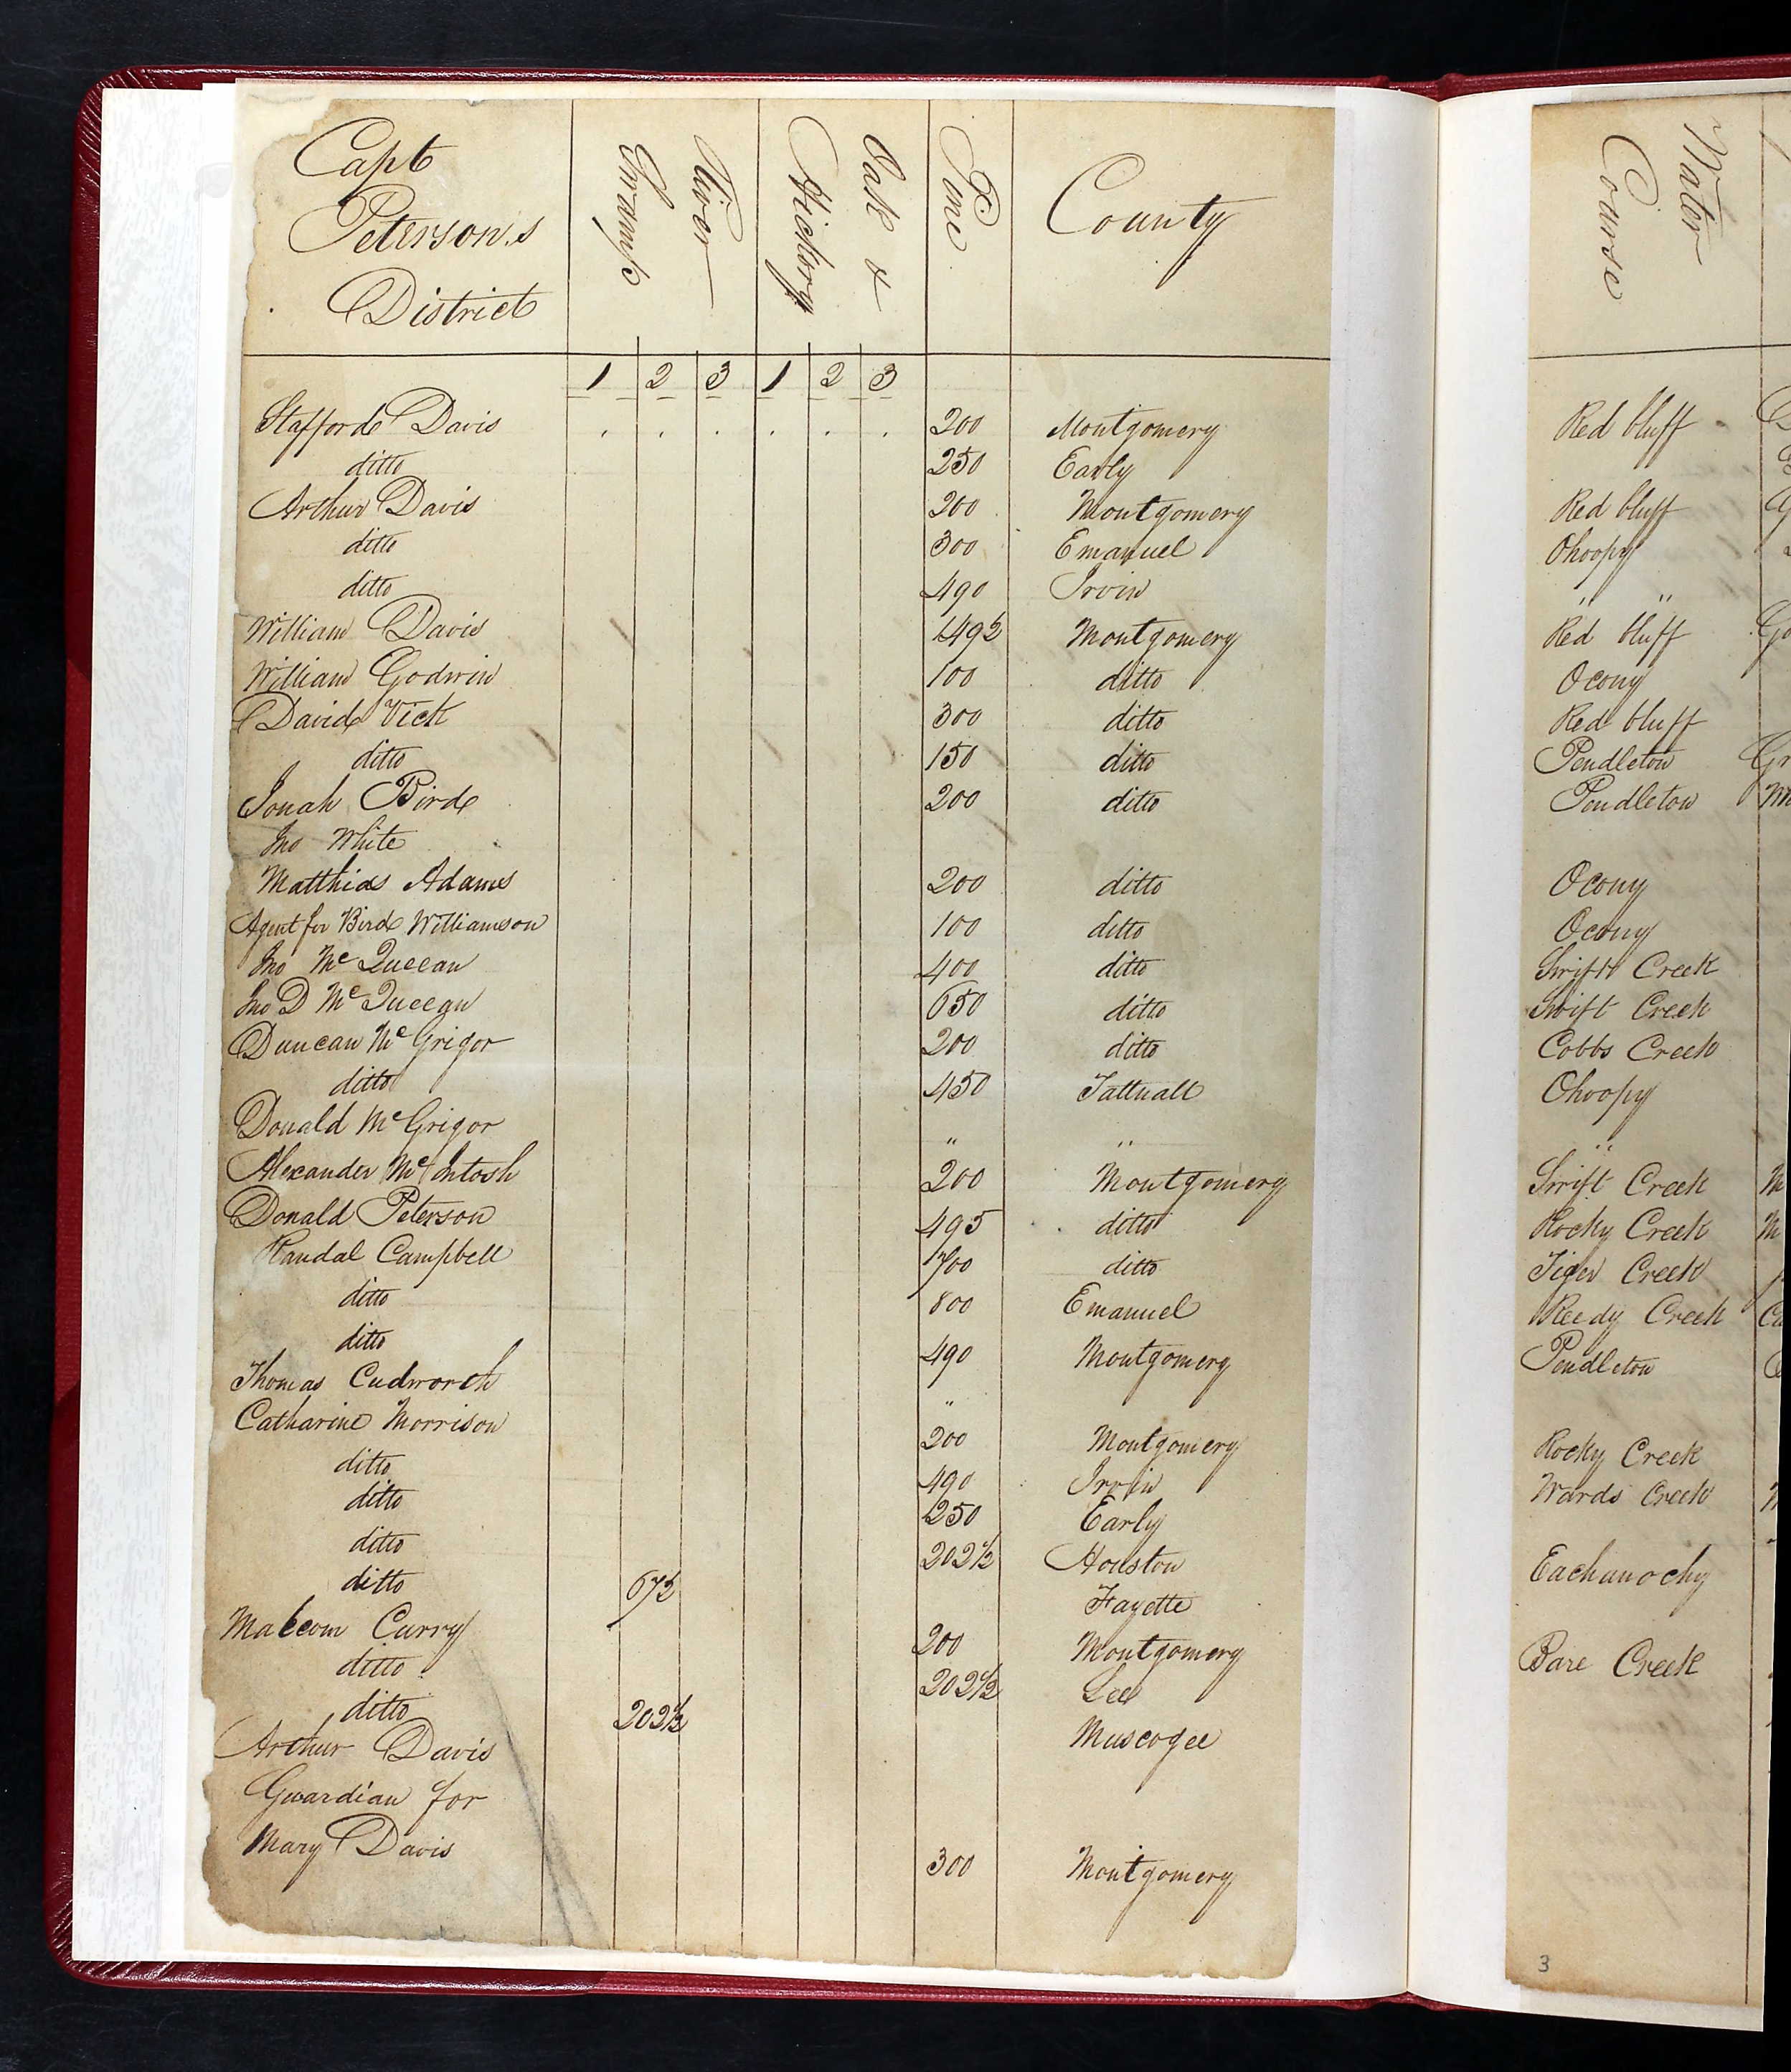 Capt
Peterson,s
District
River Swamp
Oak & Hickory
Pine
County
Water Course
1 2 3 1 2 3
Stafford Davis . . . . . . 200 Montgomery Red bluff
ditto 250 Early
Arthur Davis 200 Montgomery Red bluff
ditto 300 Emanuel Ohoopy
ditto 490 Irvin " "
William Davis 1492 Montgomery Red bluff
William Godwin 100 ditto Ocony
David Vick 300 ditto Red bluff
ditto 150 ditto Pendleton
Jonah Bird 200 ditto Pendleton
Jno White
Matthias Adams 200 ditto Ocony
Agent for Bird Williamson 100 ditto Ocony
Jno Mc Queean 400 ditto Swift Creek
Jno D Mc Queean 650 ditto Swift Creek
Duncan Mc Grigor 200 ditto Cobbs Creek
ditto 450 Tattnall Ohoopy
Donald Mc Grigor " " "
Alexander Mc Intosh 200 Montgomery Swift Creek
Donald Peterson 495 ditto Rocky Creek
Randal Campbell 700 ditto Tiger Creek
ditto 800 Emanuel Reedy Creek
ditto 490 Montgomery Pendleton
Thomas Cudworth "
Catharine Morrison 200 Montgomery Rocky Creek
ditto 490 Irvin Wards Creek
ditto 250 Early
ditto 202½ Houston Eachunochy
ditto 67½ Fayette
Malcom Curry 200 Montgomery Bare Creek
ditto 202½ Lee
ditto 202½ Muscogee
Arthur Davis
Guardian for
Mary Davis 300 Montgomery
3